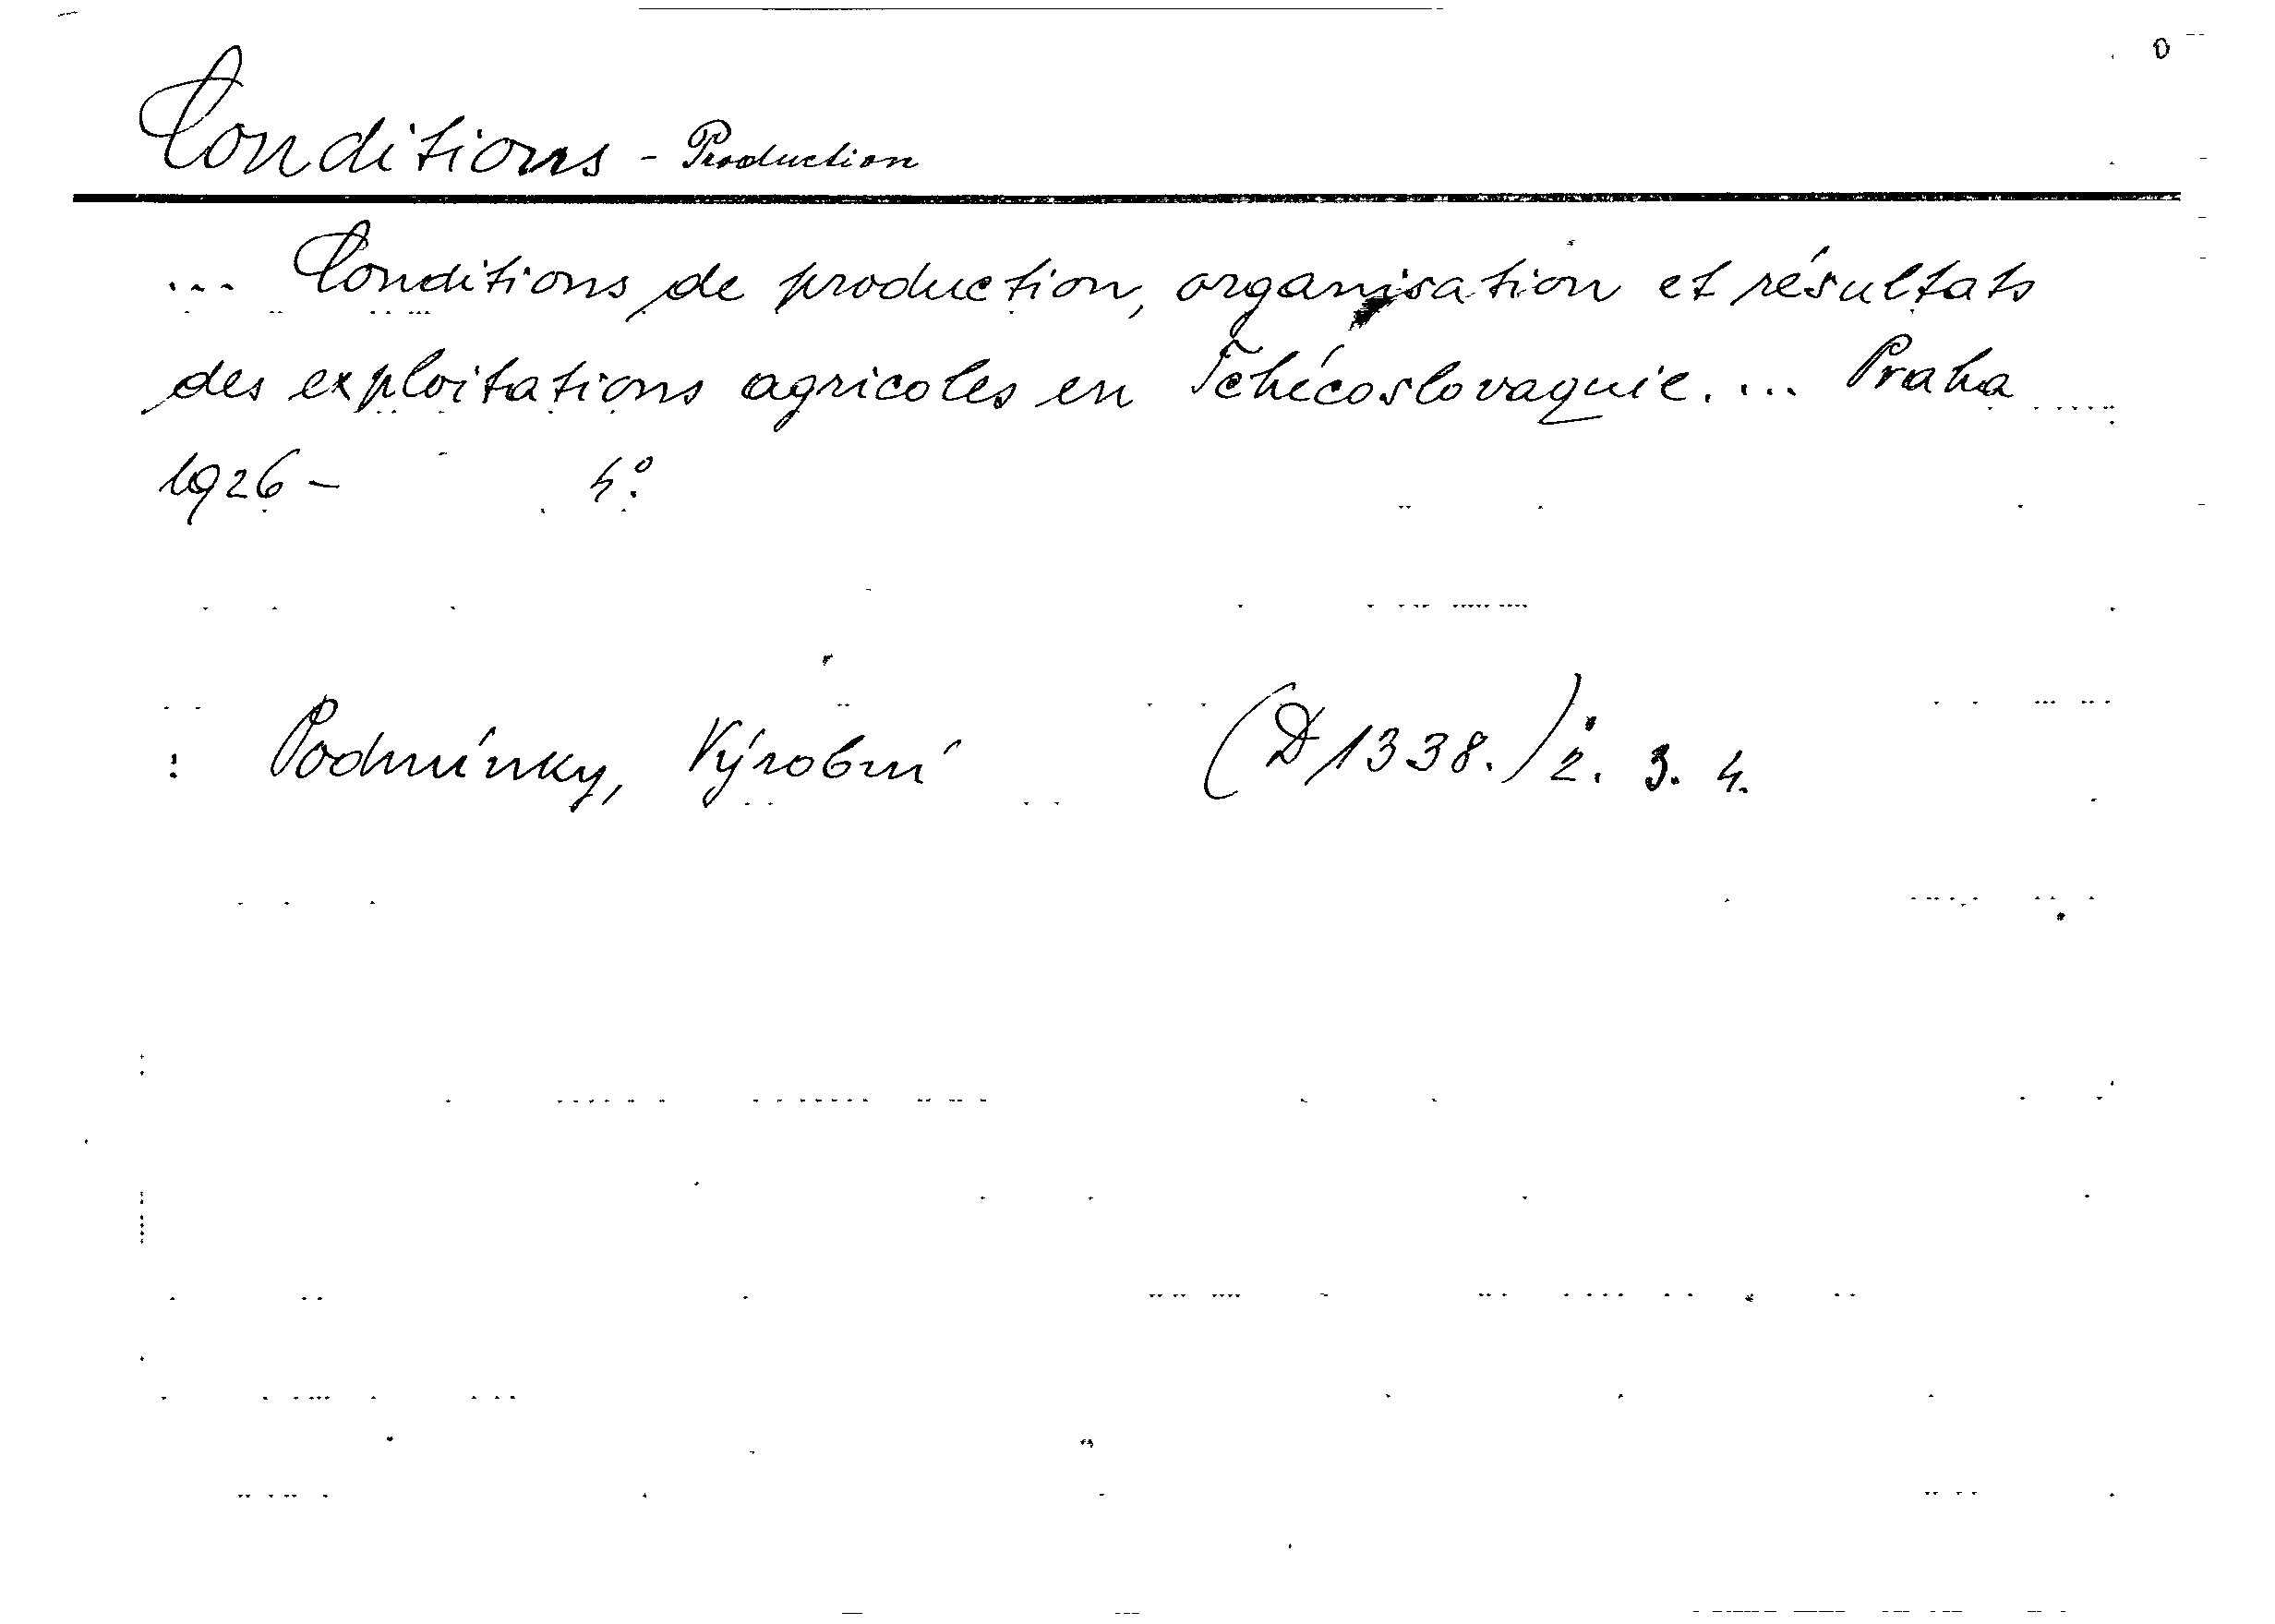 Conditions - Production
... Conditions de production, organisation et résultats
des exploitations agricoles en Tchécoslovaquie. ... Praha
1926 - 4°.
: Podmínky, Výrobní (D 1338.) 2. 3. 4.